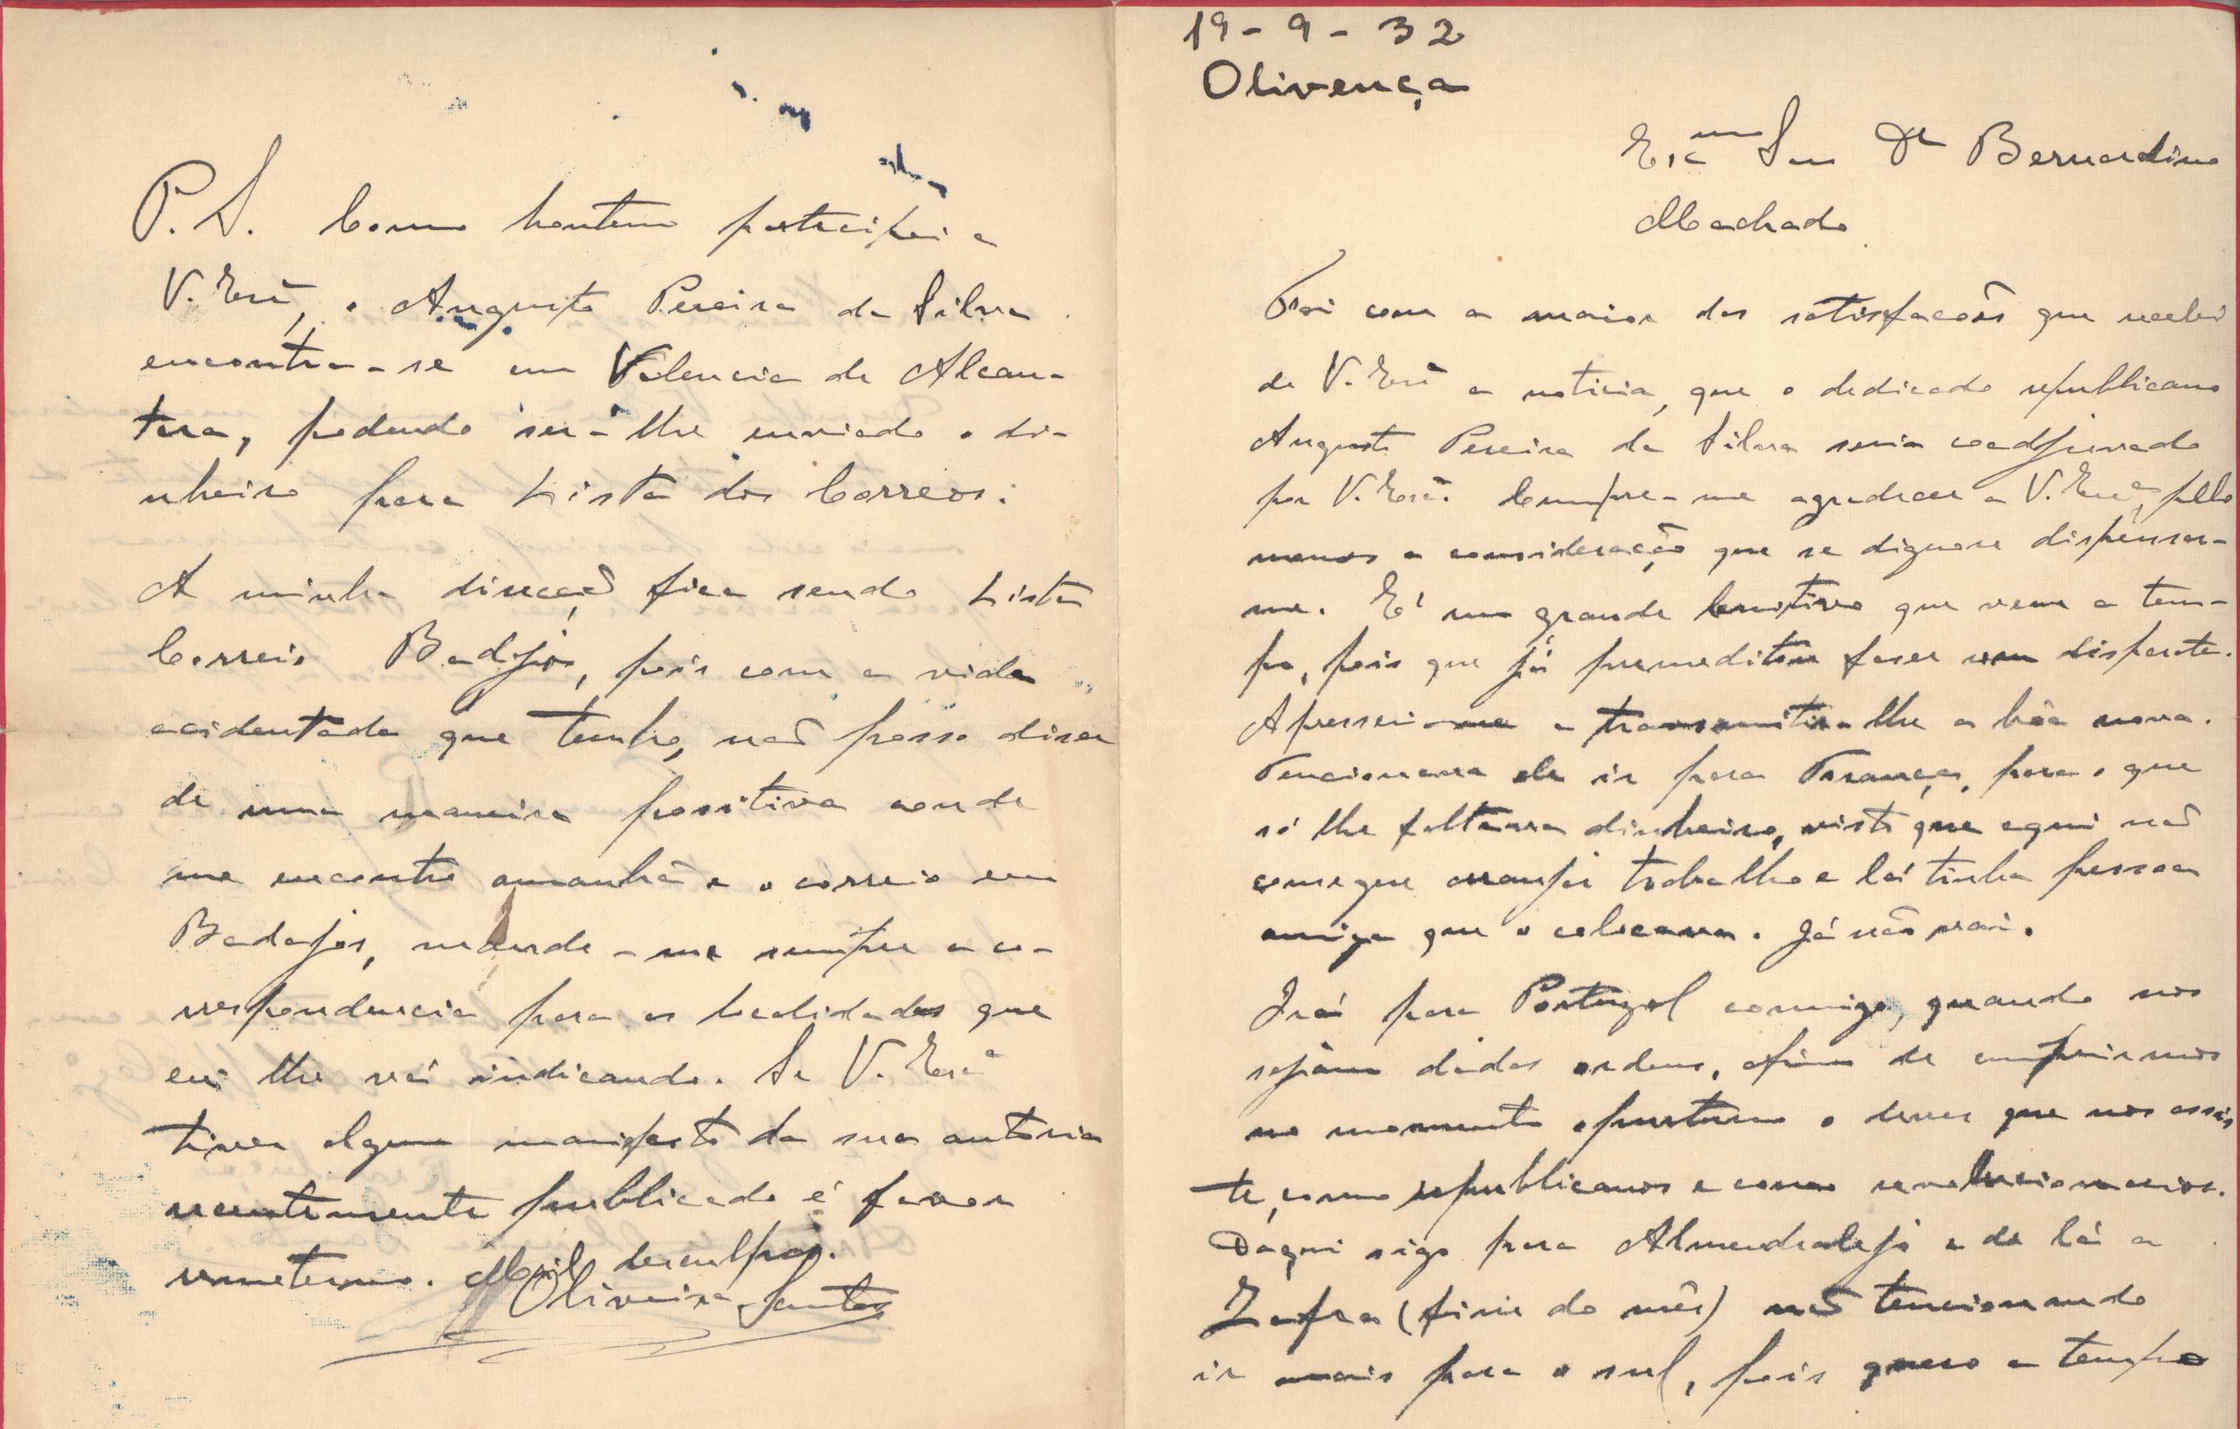 P.S. Como hontem participei a
V. Exª, o Augusto Pereira da Silva
encontra-se em Valencia de Alcan-
tara, podendo ser-lhe enviado o di-
nheiro para Lista dos Correos.
A minha direcção fica sendo Lista
Correio Badajós, pois com a vida
acidentada que tenho, não posso diser
de uma maneira positiva aonde
me encontro amanhã e o correio em
Badajos, manda-me sempre a co-
respondencia para as localidades que
eu lhe vou indicando. Se V. Exª
tiver algum manifesto da sua autoria
recentemente publicado é favor
remeter-mo. Mil desculpas.
Oliveira Santos
19-9-32
Olivença
Exmo Snr Dr Bernardino
Machado
Foi com a maior das satisfacões que recebi
de V. Exª a noticia, que o dedicado republicano
Augusto Pereira da Silva seria coadjuvado
por V. Exª. Cumpre-me agradecer a V. Exª, pelo
menos a consideração que se dignou dispensar-
me. E' um grande lenitivo que vem a tem-
po, pois que já premeditava faser um disparate.
Apressei-me a transmitir-lhe a bôa nova.
Tencionava ele ir para França, para o que
só lhe faltava dinheiro, visto que aqui não
consegue arranjar trabalho e lá tinha pessoa
amiga que o colocava. Já não vai.
Irá para Portugal comigo, quando nos
sejam dadas ordens, afim de cumprirmos
no momento oportuno o dever que nos assis
te, como republicanos e como revolucionarios.
Daqui sigo para Almendralejo e de lá a
Zafra (fins do mês) não tencionando
ir mais para o sul, pois quero a tempo